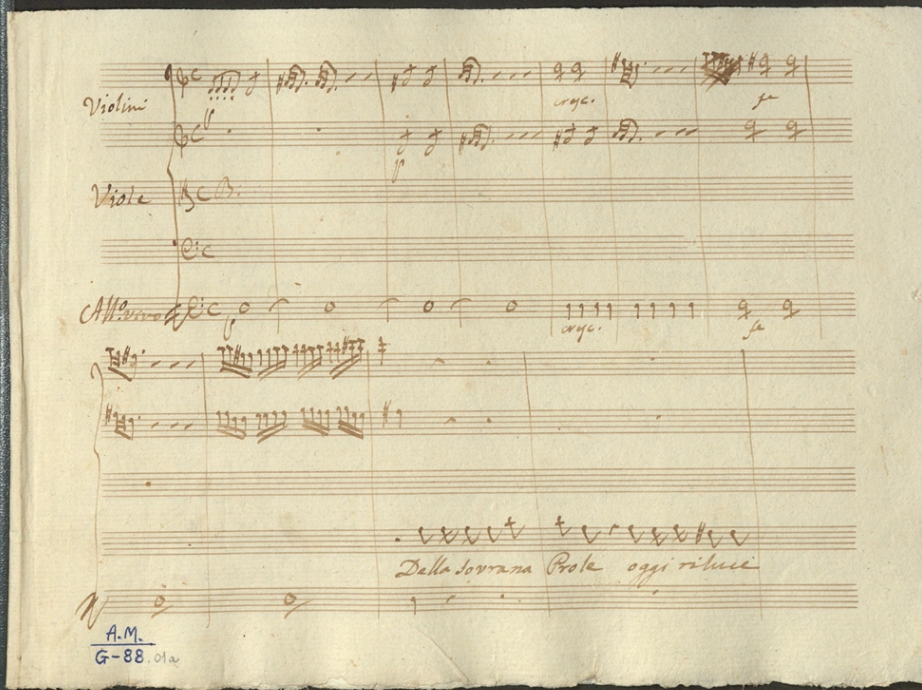 Violini
p
p
cresc.
fe
Viole
All.o vivo
p
cresc.
fe
Della sovrana Prole oggi riluce
A.M.
G-88.01a